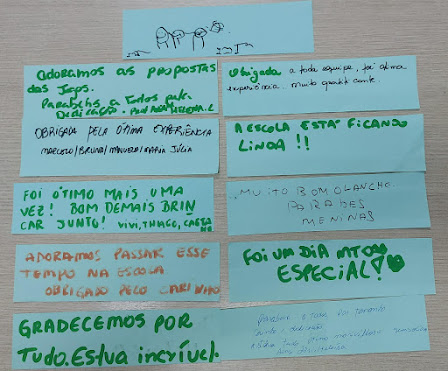 ADORAMOS AS PROPOSTAS
dos Jogos.
Parabéns a Todos pela
Dedicação.
Obrigada a toda equipe, foi ótima
experiência. muito gratificante.
OBRIGADA PELA ÓTIMA EXPERIÊNCIA
MARCELO/BRUNA/MANUELA/MARIA JÚLIA
A ESCOLA ESTÁ FICANDO
LINDA!!
FOI ÓTIMO MAIS UMA
VEZ! BOM DEMAIS BRIN
CAR JUNTO! VIVI, THIAGO, CAETA
NO
MUITO BOM O LANCHE
PARABÉNS
MENINAS
ADORAMOS PASSAR ESSE
TEMPO NA ESCOLA
OBRIGADO PELO CARINHO
FOI UM DIA MTO
ESPECIAL!
GRADECEMOS POR
TUDO. Estva incrível.